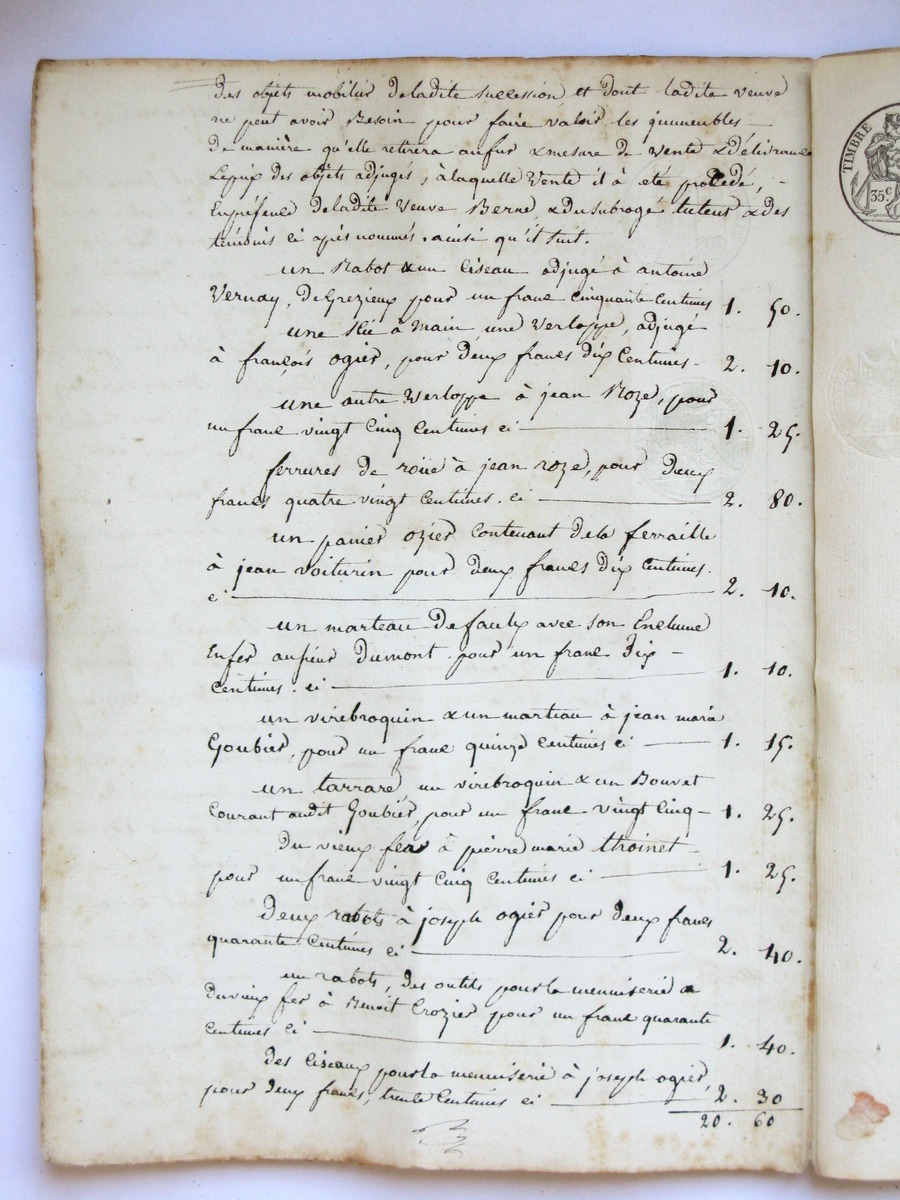 des objets mobilier de ladite succession et dont ladite veuve
ne peut avoir Besoin pour faire valoir les immeubles –
de manière qu'elle retirera au fur & mesure de vente & délivrance
Leprix des objets adjugés, à laquelle Vente il à été procedé, –
En présence de ladite Veuve Berne, & du subrogé tuteur & des
temoins ci après nommés. ainsi qu'il suit.
un Rabot & un Ciseau adjugé à antoine
Vernay, de Grezieux pour un franc Cinquante Centimes 1. 50.
une Scie à Main une Verloppe, adjugé
à françois ogier, pour deux francs dix Centimes – 2. 10.
une autre Verloppe à jean Roze, pour
un franc vingt Cinq Centimes ci 1. 25.
ferrures de roüe à jean roze, pour deux
francs quatre vingt Centimes. ci 2. 80.
un panier ozier Contenant de la ferraille
à jean voiturin pour deux francs dix Centimes.
ci 2. 10.
un marteau de faulx avec son Enclume
En fer au sieur Dumont pour un franc Dix –
Centimes. ci 1. 10.
un virebroquin & un marteau à jean marie
Goubier, pour un franc quinze Centimes ci 1. 15.
un tarrare, un virebroquin & un Bouvet
Courant audit Goubier, pour un franc vingt Cinq – 1. 25.
Du vieux fer à pierre marie thoinet
pour un franc vingt Cinq Centimes ci 1. 25.
Deux rabots à joseph ogier pour deux francs
quarante Centimes ci 2. 40.
un rabots, des outils pour la menuiserie &
du vieux fer à Benoit Crozier pour un franc quarante
Centimes ci 1. 40.
des Ciseaux pour la menuiserie à joseph ogier,
pour deux francs, trente Centimes ci 2. 30
20. 60
TIMBRE
35 c